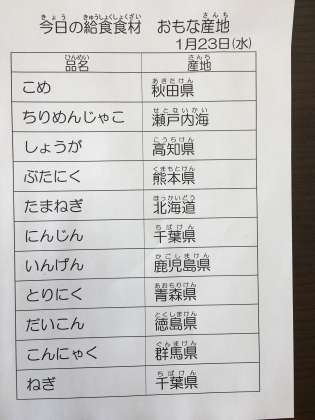 今日の給食食材 おもな産地
1月23日(水)
品名 産地
こめ 秋田県
ちりめんじゃこ 瀬戸内海
しょうが 高知県
ぶたにく 熊本県
たまねぎ 北海道
にんじん 千葉県
いんげん 鹿児島県
とりにく 青森県
だいこん 徳島県
こんにゃく 群馬県
ねぎ 千葉県